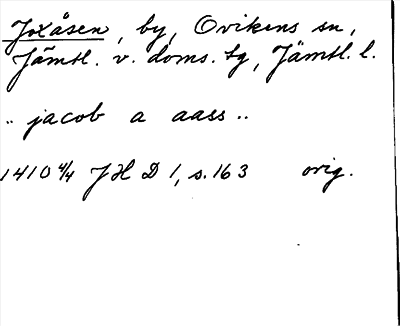 Jxåsen, by, Ovikens sn,
Jämtl. v. doms. tg, Jämtl. l.
.. jacob a aass ..
1410 4/4 JHD 1, s. 163 orig.